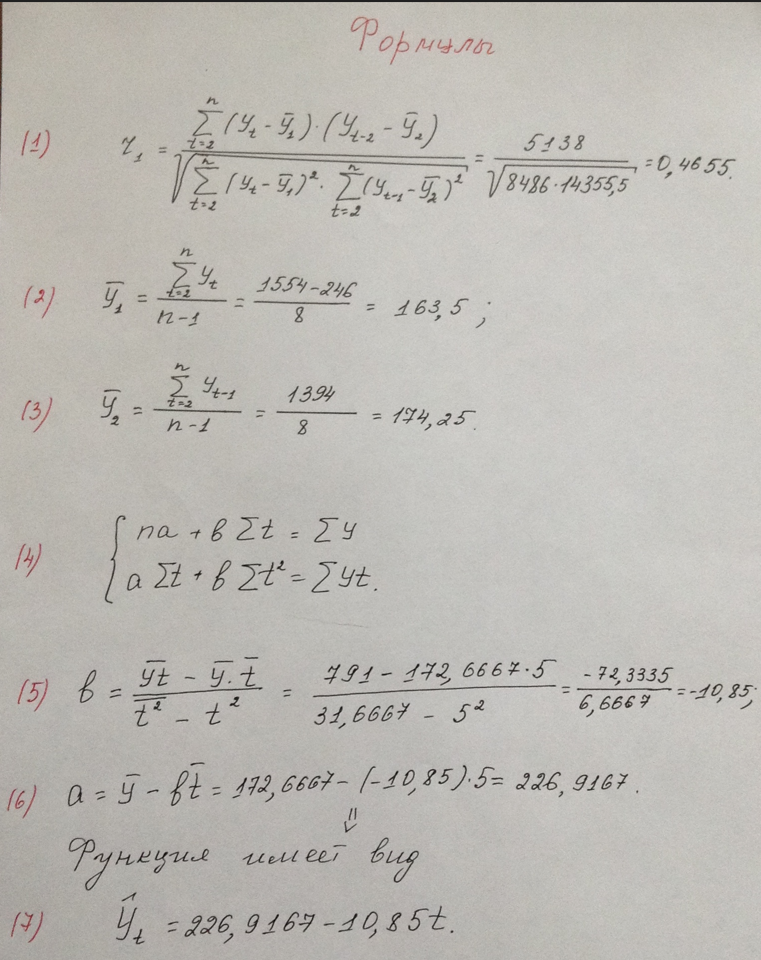 Формулы
(1) r₁ = ∑ⁿₜ₌₂ (yₜ - ȳ₁)·(yₜ₋₂ - ȳ₂) / √(∑ⁿₜ₌₂ (yₜ - ȳ₁)² · ∑ⁿₜ₌₂ (yₜ₋₁ - ȳ₂)²) = 5138 / √(8486·14355,5) = 0,4655.
(2) ȳ₁ = ∑ⁿₜ₌₂ yₜ / n-1 = 1554-246 / 8 = 163,5 ;
(3) ȳ₂ = ∑ⁿₜ₌₂ yₜ₋₁ / n-1 = 1394 / 8 = 174,25.
(4) { na + в ∑t = ∑y
a ∑t + в ∑t² = ∑yt.
(5) в = y̅t̅ - ȳ·t̅ / t̅² - t² = 791 - 172,6667·5 / 31,6667 - 5² = -72,3335 / 6,6667 = -10,85;
(6) a = ȳ - вt̅ = 172,6667 - (-10,85)·5 = 226,9167.
⇓
Функция имеет вид
(7) ŷₜ = 226,9167 - 10,85t.